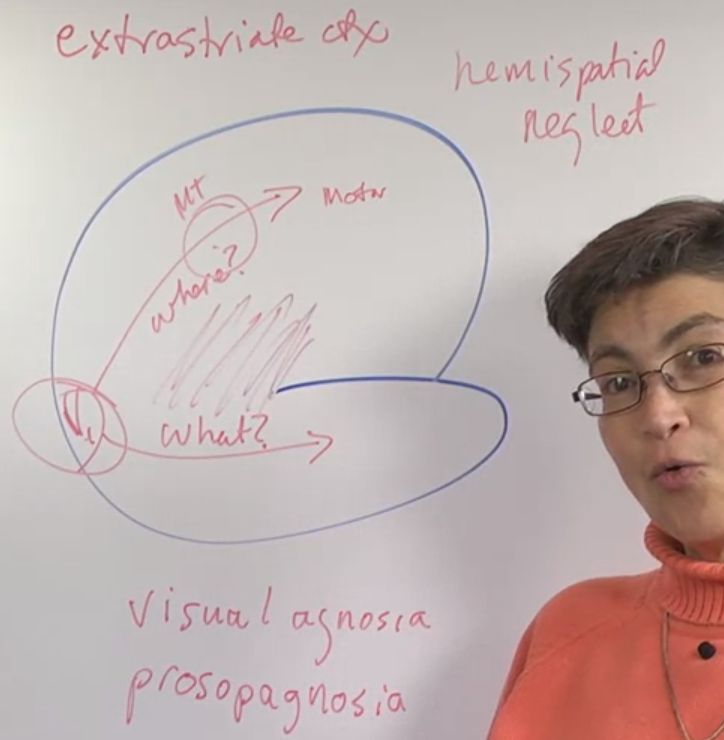 extrastriate ctx
hemispatial
neglect
MT
Motor
where?
V1
what?
visual agnosia
prosopagnosia